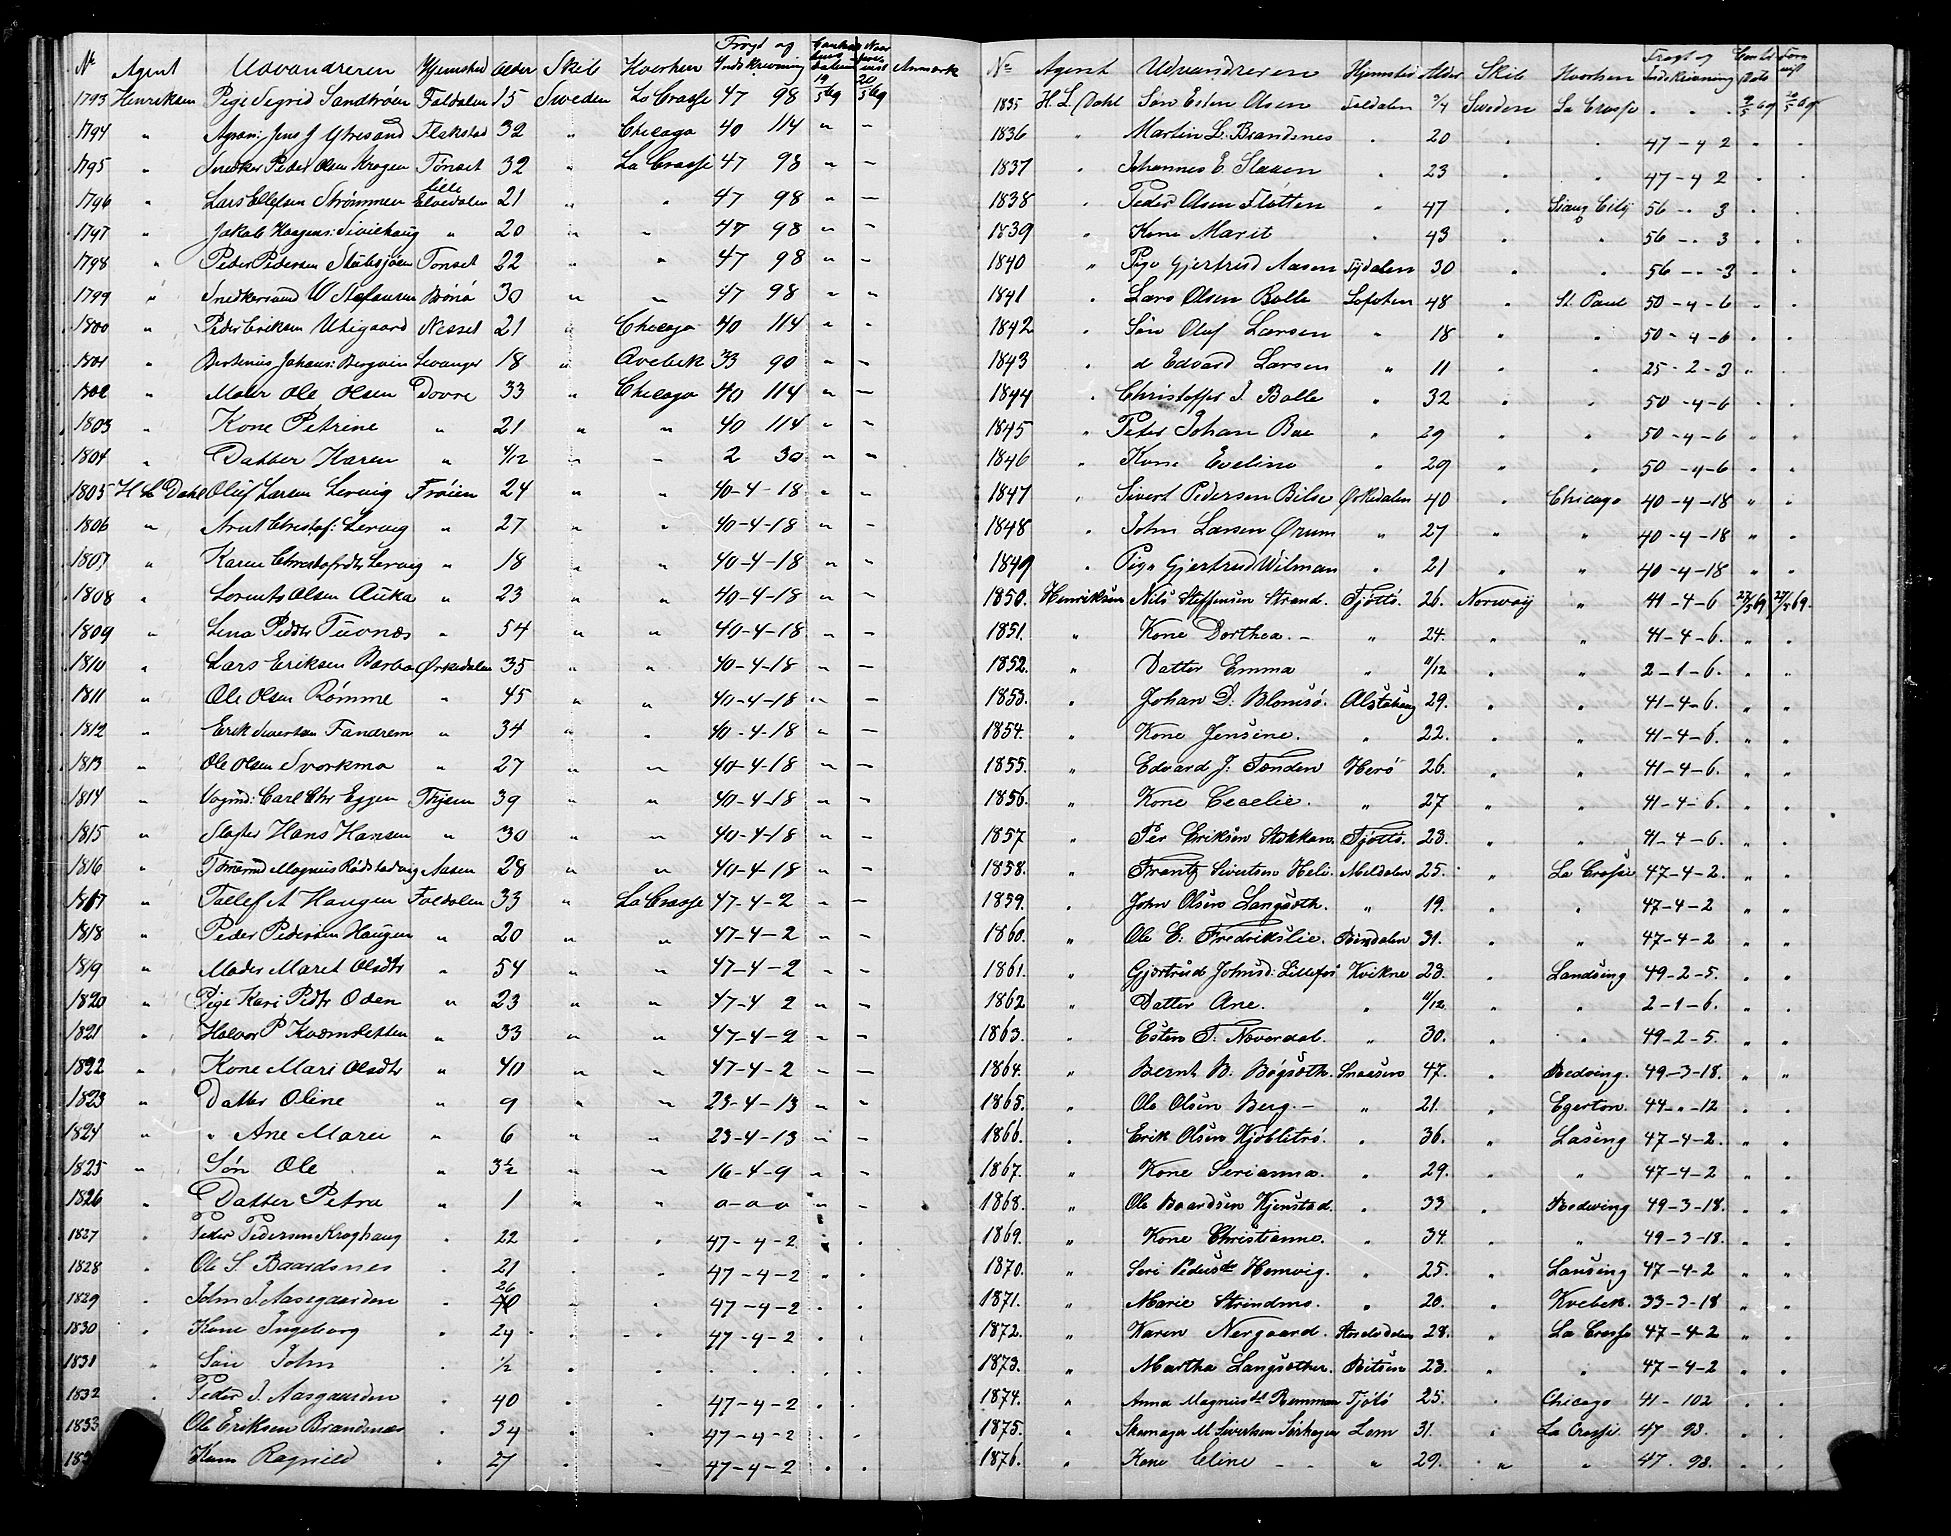 No Agent Udvandreren Hjemsted Alder Skib Hvorhen Fragt og Indskrivning Anmærk
1793 Henriksen Pige Sigrid Sandtrøen Foldalen 15 Sweden La Crosse 47 98 19/5 69 20/5 69
1794 " Agron: Jens J Ytresand Flakstad 32 " Chicago 40 114 " "
1795 " Snedker Peder Olsen Krogen Tønset 32 La Crosse 47 98 " "
1796 " Lars Ellefsen Strømmen Lille Elvedalen 21 " " 47 98 " "
1797 " Jakob Haagens: Siviehaug " 20 " " 47 98 " "
1798 " Peder Pedersen Stubsjøen Tonset 22 " " 47 98 " "
1799 " Snedkersvend W Stefansen Brönö 30 " " 47 98 " "
1800 " Peder Eriksen Utigaard Nesset 21 " Chicago 40 114 " "
1801 " Bertenius Johans: Bergvin Levanger 18 " Qvebek 33 90 " "
1802 " Maler Ole Olsen Dovre 33 " Chicago 40 114 " "
1803 " Kone Petrine " 21 " " 40 114 " "
1804 " Datter Karen " 4/12 " " 2 30 " "
1805 H L Dahl Oluf Larsen Lervig Frøien 24 " " 40-4-18 " "
1806 " Arnt Christof: Lervig " 27 " " 40-4-18 " "
1807 " Karen Christofrdtr Lervig " 18 " " 40-4-18 " "
1808 " Lorents Olsen Auka " 23 " " 40-4-18 " "
1809 " Lena Pedtr Tuvnæs " 54 " " 40-4-18 " "
1810 " Lars Eriksen Barbo Ørkedalen 35 " " 40-4-18 " "
1811 " Ole Olsen Rømme " 45 " " 40-4-18 " "
1812 " Erik Sivertsen Fandrem " 34 " " 40-4-18 " "
1813 " Ole Olsen Svorkmo " 27 " " 40-4-18 " "
1814 " Vognmd: Carl Chr Eggen Thjem 39 " " 40-4-18 " "
1815 " Slagter Hans Hansen " 30 " " 40-4-18 " "
1816 " Tømmermd Magnus Rødstadvig Aasen 28 " " 40-4-18 " "
1817 " Tollef A Haugen Foldalen 33 " La Crosse 47-4-2 " "
1818 " Peder Pedersen Haugen " 20 " " 47-4-2 " "
1819 " Moder Maret Olsdtr " 54 " " 47-4-2 " "
1820 " Pige Kari Pedtr Oden " 23 " " 47-4 2 " "
1821 " Halvor P Kvernsletten " 33 " " 47-4-2 " "
1822 " Kone Mari Olsdtr " 40 " " 47-4-2 " "
1823 " Datter Oline " 9 " " 23-4-13 " "
1824 " " Ane Marie " 6 " " 23-4-13 " "
1825 " Søn Ole " 3½ " " 16-4-9 " "
1826 " Datter Petra " 1 " " 0-0-0 " "
1827 " Peder Pedersen Kroghaug " 22 " " 47-4-2 " "
1828 " Ole S. Baardsnes " 21 " " 47-4-2 " "
1829 " John J. Aasegaarden " 26 " " 47-4-2 " "
1830 " Kone Ingeborg " 24 " " 47-4-2 " "
1831 " Søn John " ½ " " " "
1832 " Peder J. Aasgaarden " 40 " " 47-4-2 " "
1833 Ole Eriksen Brandsnæs " 34 " " 47-4-2 " "
Kone Ragnild " 27 " " 47-4-2 " "
No Agent Udvandreren Hjemsted Alder Skib Hvorhen Fragt og Indskrivning
1835 H L Dahl Søn Esten Olsen Foldalen 3/4 Sweden La Crosse " " " 69 69
1836 " Martin L. Brandsnes " 20 " " 47-4 2 " "
1837 " Johannes E. Slaaen " 23 " " 47-4 2 " "
1838 " Peder Olsen Fløtten " 47 " Sioux City 56-" 3 " "
1839 " Kone Marit " 43 " " 56-" 3 " "
1840 " Pige Gjertrud Aasen Tydalen 30 " " 56-"-3 " "
1841 " Lars Olsen Bolle Lofoten 48 " St. Paul 50-4-6 " "
1842 " Søn Oluf Larsen " 18 " " 50-4-6 " "
1843 " d Edvard Larsen " 11 " " 25-2-3 " "
1844 " Christoffer J. Bolle " 32 " " 50-4-6 " "
1845 " Peter Johan Boe " 29 " " 50-4-6 " "
1846 " Kone Eveline " 29 " " 50-4-6 " "
1847 " Sivert Pedersen Bilse Ørkedalen 40 " Chicago 40-4-18 " "
1848 " John Larsen Ørum " 27 " " 40-4-18 " "
1849 " Pige Gjertrud Wilman " 21 " " 40-4-18 " "
1850. Henriksen Nils Steffensen Strand. Tjöttö. 26. Norway " 41-4-6 27/5 69 27/5 69.
1851. " Kone Dorthea. - " 24. " " 41-4-6. " "
1852. " Datter Emma " 11/12 " " 2-1-6. " "
1853. " Johan D. Blomsö. Alstahaug 29. " " 41-4-6. " "
1854. " Kone Jensine. " 22. " " 41-4-6. " "
1855. " Edvard J. Tønden Herö 26. " " 41-4-6. " "
1856. " Kone Cecelie. " 27 " " 41-4-6. " "
1857 " Per Eriksen Stokkan. Tjöttö. 23. " " 41-4-6. " "
1858. " Frantz Sivertsen Heli. Meldalen 25. " La Crosse 47-4-2. " "
1859. " John Olsen Langsæth. " 19. " " 47-4-2 " "
1860. " Ole E. Fredrikslie. Bindalen 31. " " 47-4-2 " "
1861. " Gjertrud Johnsd: Lillefos Kvikne 23. " Landsing 49-2-5. " "
1862 " Datter Ane. " 11/12 " " 2-1-6. " "
1863. " Esten T. Novordal. " 30. " " 49-2-5. " "
1864. " Bernt B. Bøgsæth. Snaasen 47. " Redving. 49-3-18. " "
1865. " Ole Olsen Berg.- " 21. " Egerton. 44-"-12 " "
1866. " Erik Olsen Kjöblitrö. " 36. " Lasing 47-4-2. " "
1867. " Kone Serianna. " 29. " " 47-4-2 " "
1868. " Ole Baardsen Kjenstad. " 33 " Redwing 49-3-18. " "
1869. " Kone Christianne. " 34 " " 49-3-18. " "
1870. " Seri Pedersdr Hemvig. " 25. " Lansing 47-4-2 " "
1871. " Marie Strindmo. " 20. " Kvebek. 33-3-18 " "
1872. " Karen Nergaard. 28. " La Crosse 47-4-2 " "
1873. " Martha Langsæther Ritsen 23. " " 47-4-2 " "
1874. " Anna Magnusdt Remman Tjötö 25. " Chicago 41- 102 " "
1875. " Skomager M Sivertsen Sørhagen Lom 31. " La Crosse 47 98. " "
1876. " Kone Eline - - " 29. " " 47. 98. " "